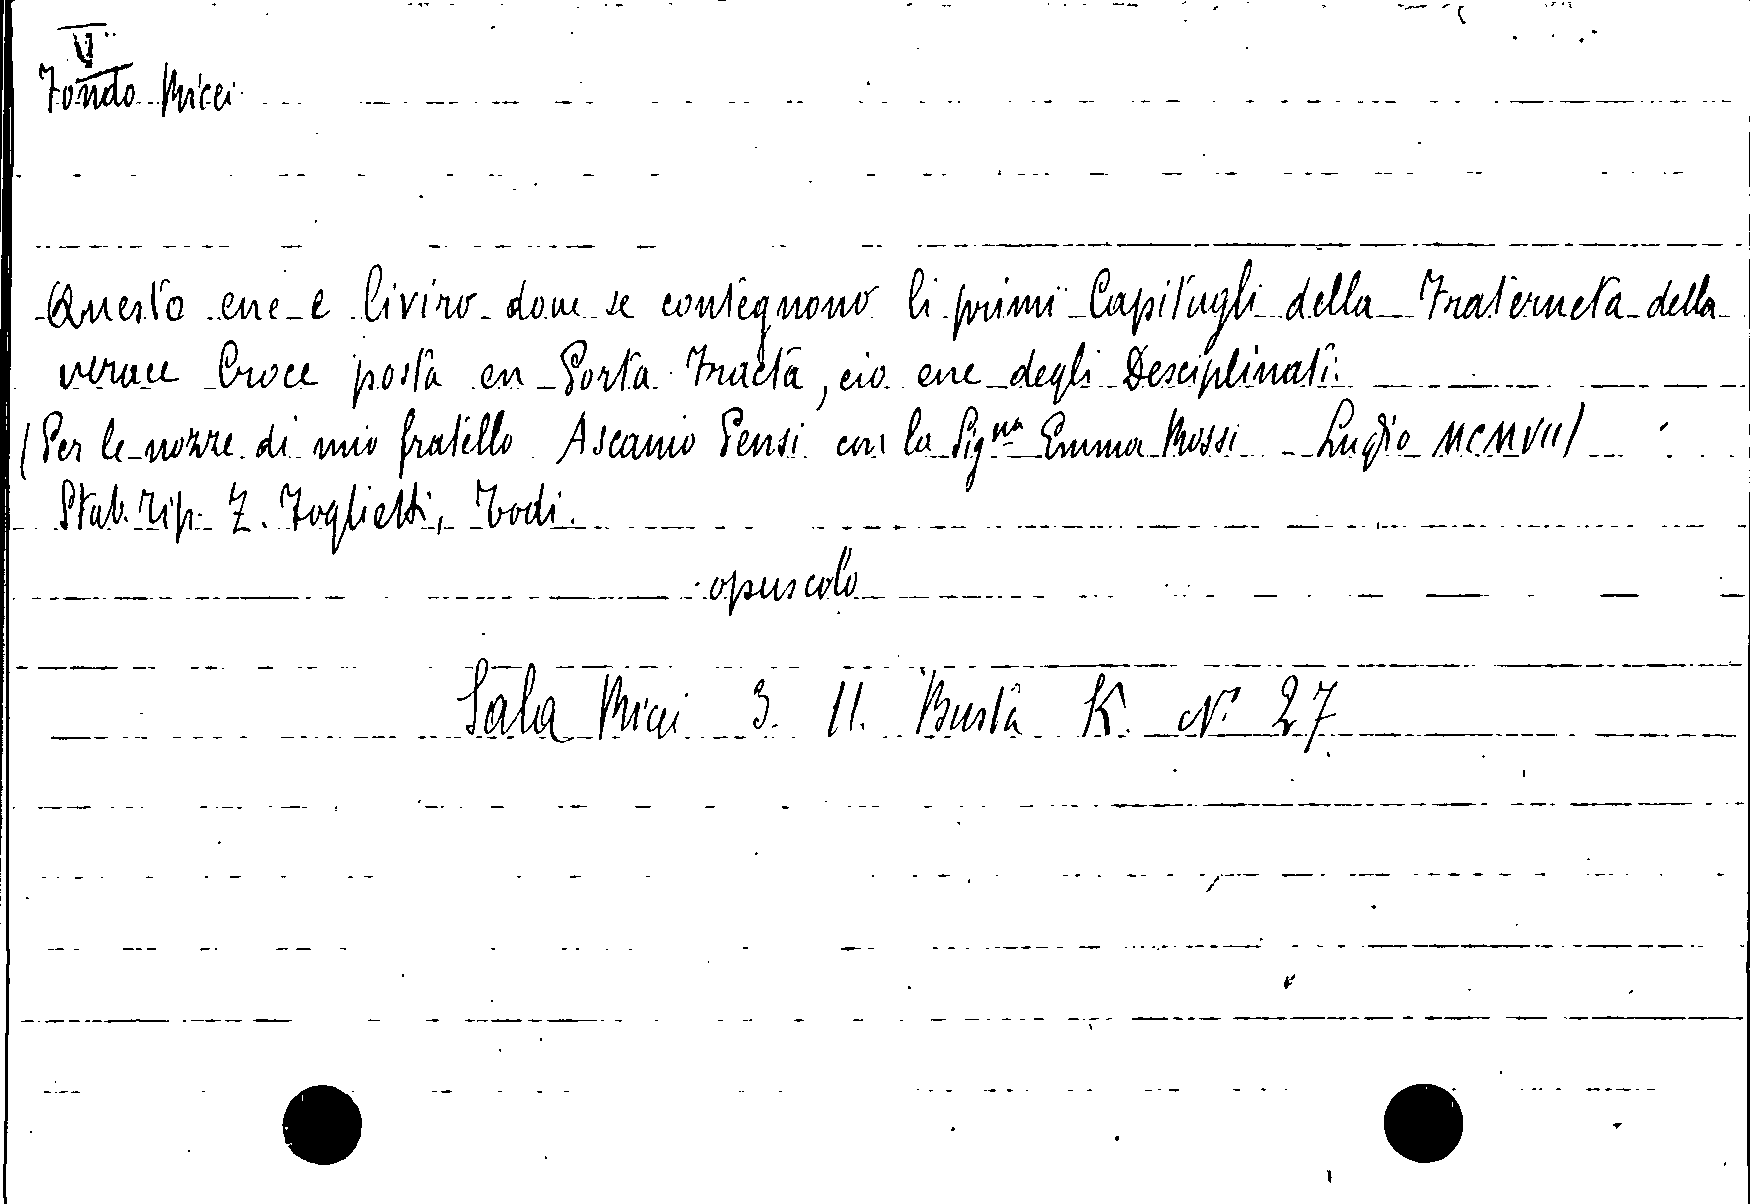 VI
Fondo Ricci
Questo ene e liviro dove se contegnono li primi Capitugli della Fraterneta della
verace Croce posta en Porta Fracta, cio ene degli Desciplinati.
(Per le nozze di mio fratello Ascanio Pensi con la Sig.na Emma Rossi Luglio MCMVII)
Stab. Tip. Z. Foglietti, Todi.
opuscolo
Sala Ricci 3. 11. Busta K. N° 27